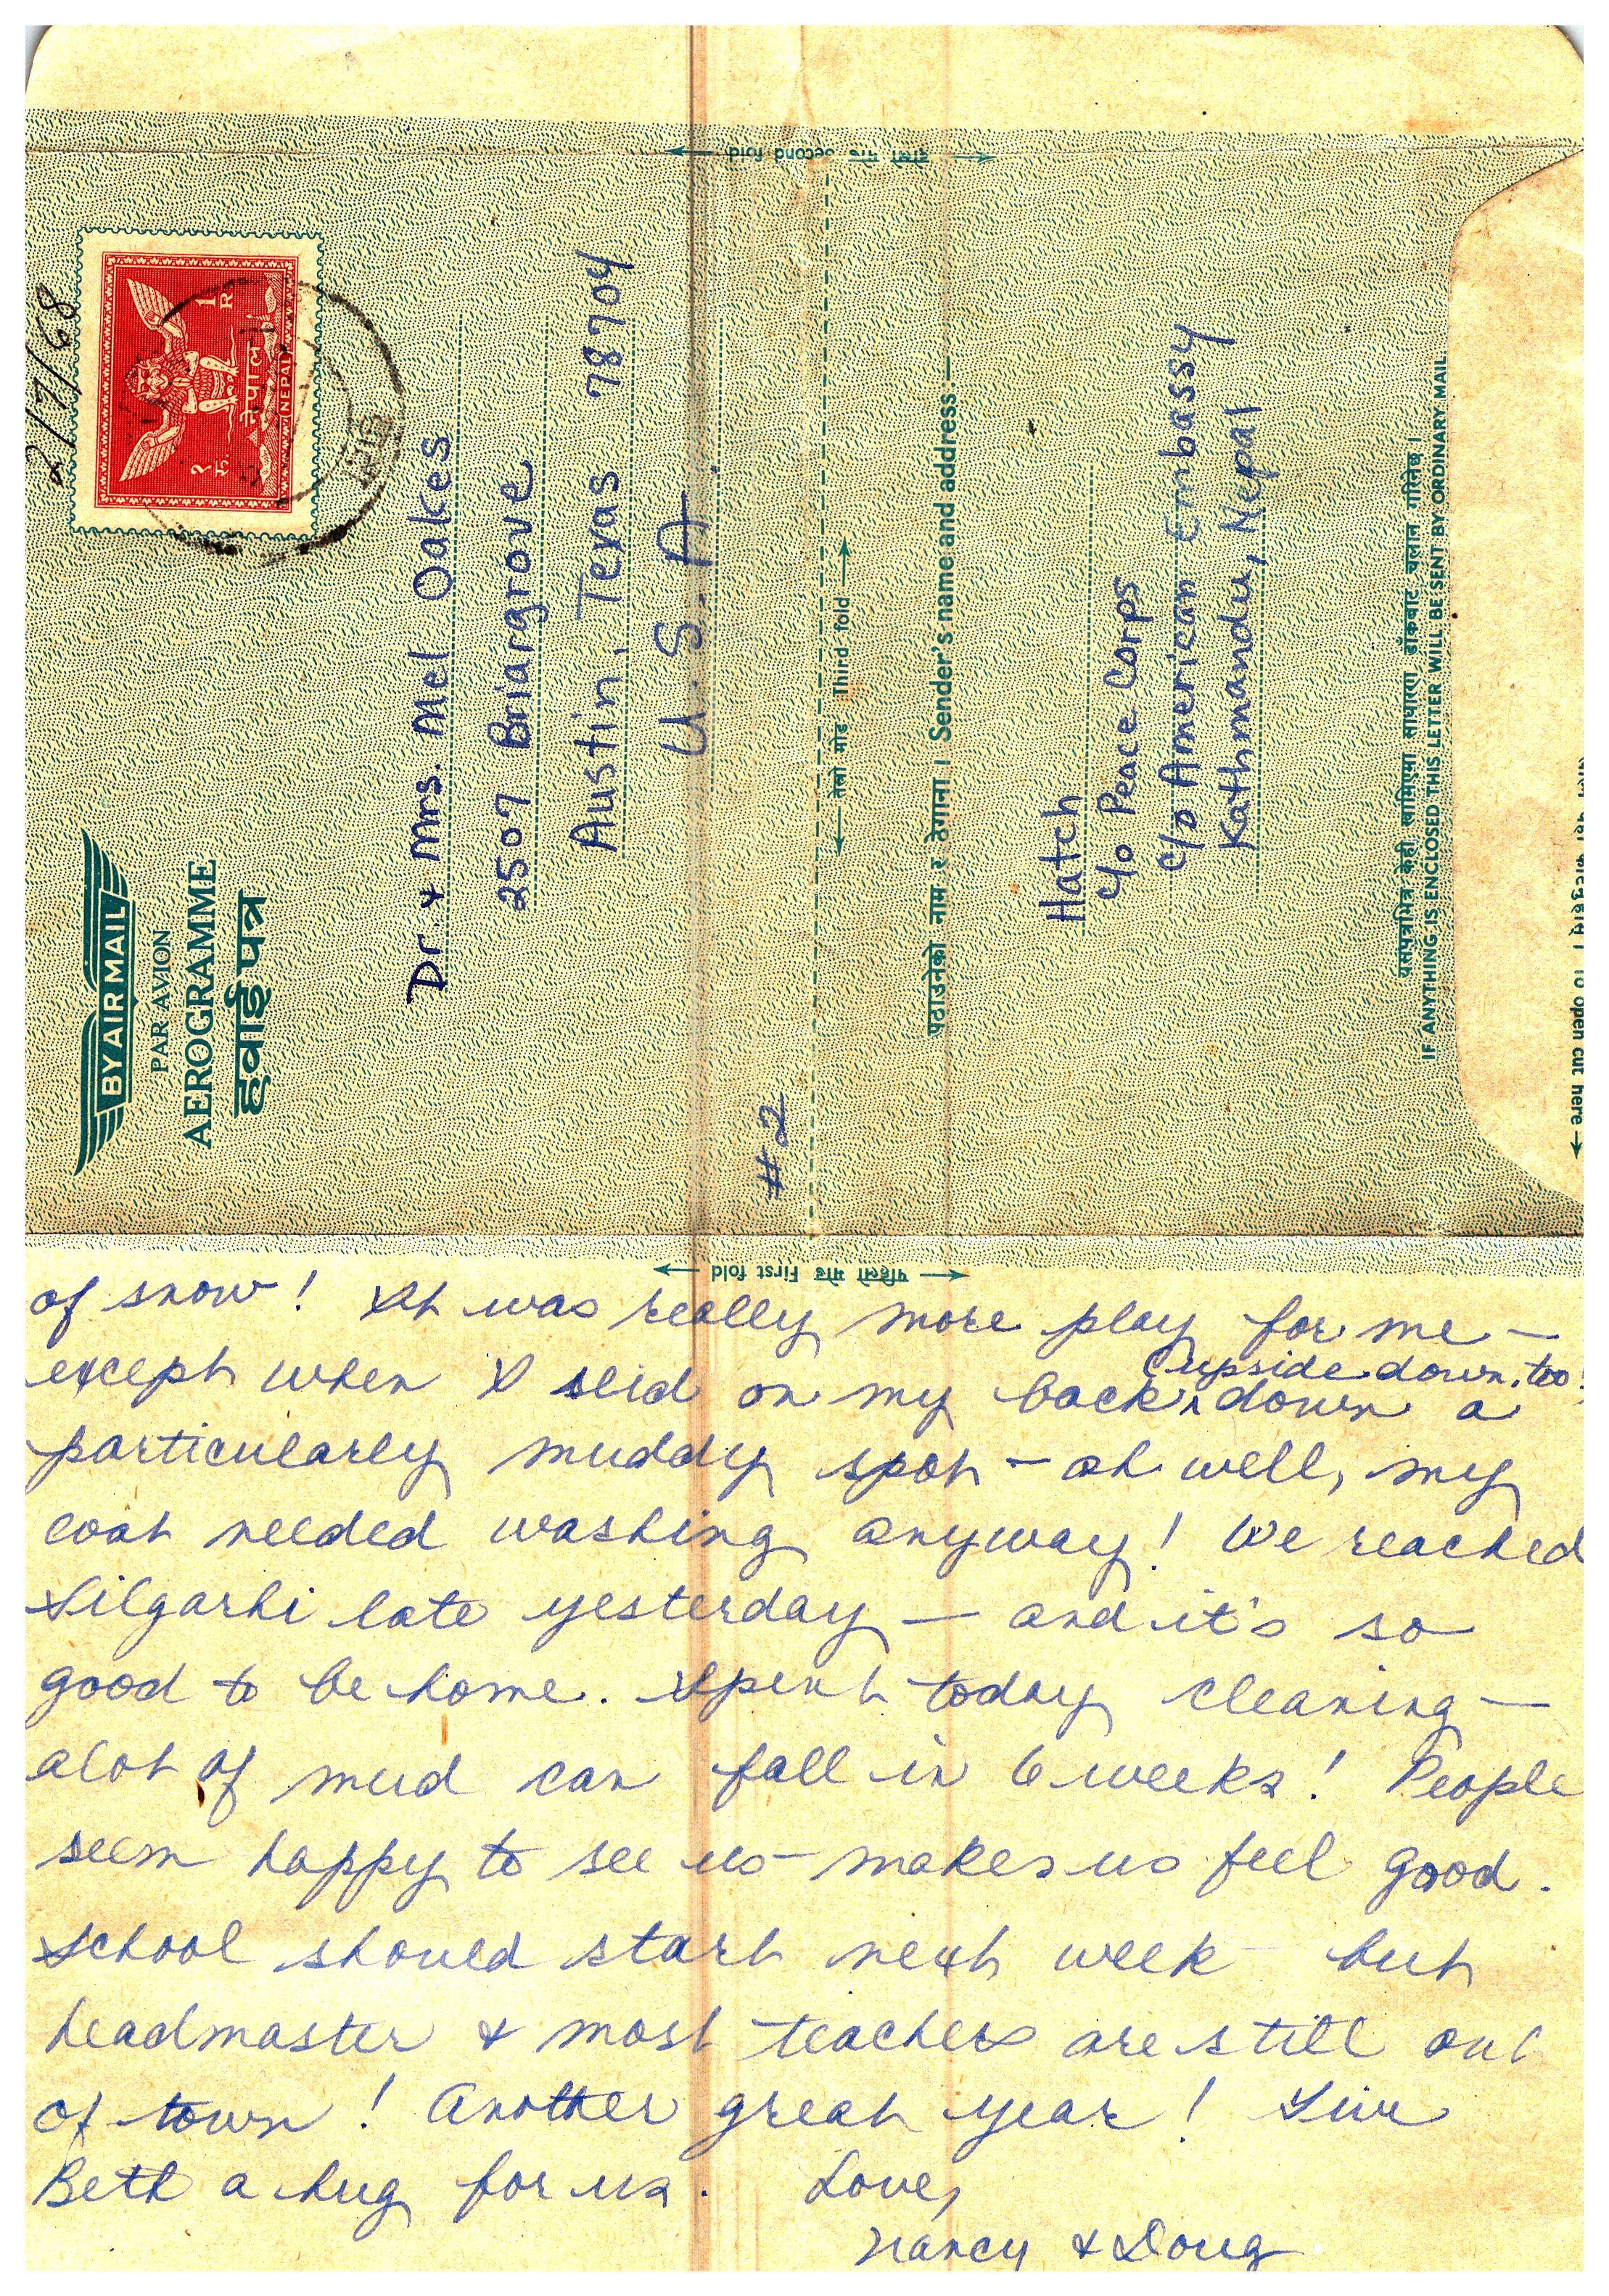 2/17/68
१ रु.
1 R
नेपाल
(NEPAL)
BY AIR MAIL
PAR AVION
AEROGRAMME
हवाई पत्र
Dr. & Mrs. Mel Oakes
2507 Briargrove
Austin, Texas 78704
U.S.A.
#2
दोस्रो मोड Second fold
तेस्रो मोड Third fold
पठाउनेको नाम र ठेगाना । Sender's name and address:—
Hatch
c/o Peace Corps
c/o American Embassy
Kathmandu, Nepal
यसपत्रभित्र केही खामिएमा साधारण डाँकबाट चलान गरिनेछ ।
IF ANYTHING IS ENCLOSED THIS LETTER WILL BE SENT BY ORDINARY MAIL
To open cut here
पहिलो मोड First fold
of snow! It was really more play for me —
except when I slid on my back (upside down, too!) down a
particularly muddy spot — oh well, my
coat needed washing anyway! We reached
Silgarhi late yesterday — and it's so
good to be home. Spent today cleaning —
alot of mud can fall in 6 weeks! People
seem happy to see us — makes us feel good.
School should start next week — but
headmaster & most teachers are still out
of town! Another great year! Give
Beth a hug for us. Love,
Nancy & Doug